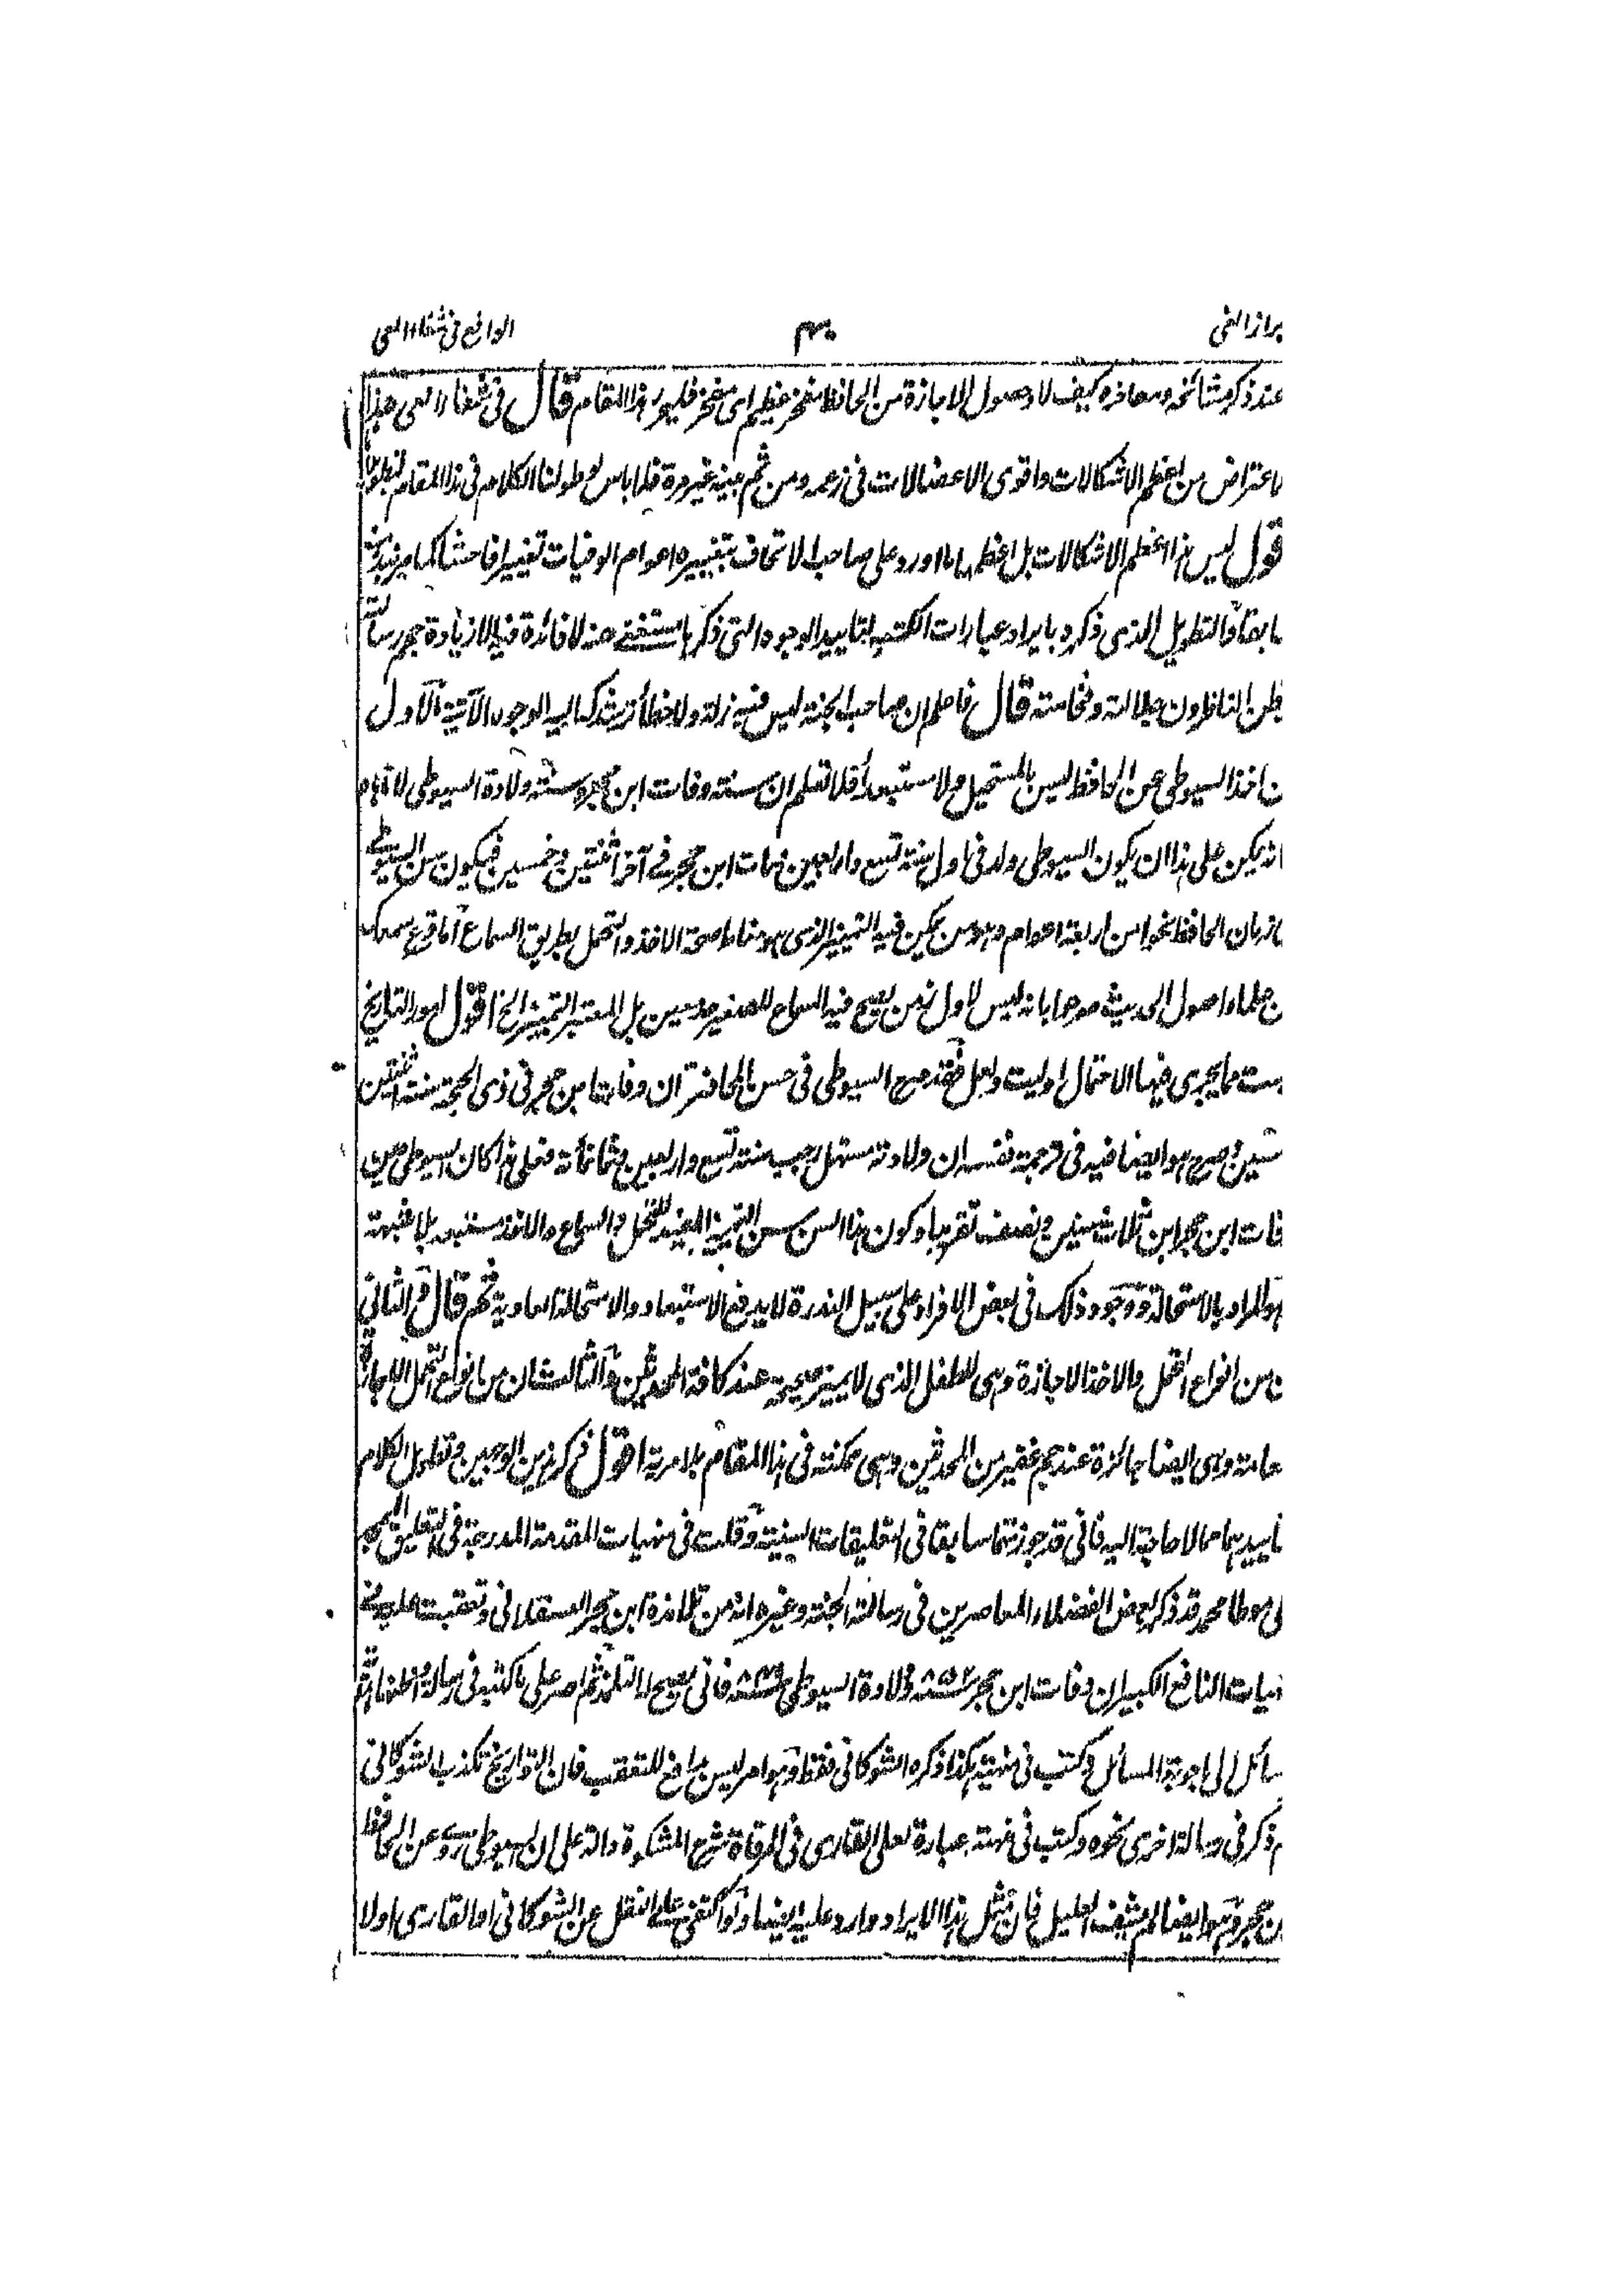 براز الغى ۴۰ الواقع فى شفاء العى
عند ذكر مشائخه ومفاخره كيف لا وحصول الاجازة من الحافظ مفخر عظيم اى مفخر فليحرر هذا المقام قال فى شفاء العى هذا
لاعتراض من اعظم الاشكالات واقوى الاعضالات فى زعمه ومن ثم عبينه غير مرة فلا باس لو طولنا الكلام فى هذا المقام
قول ليس هذا اعظم الاشكالات بل اعظمها ما اورد على صاحب الاتحاف بتغييره اعوام الوفيات تغييرا فاحشا كما مر
ابقا والتطويل الذى ذكره بايراد عبارات الكتب لتاييد الوجوه التى ذكرها مستغنى عنه لا فائدة فيه الا زيادة حجم رسالته
يظن الناظرون جلالته وفخامته قال فاعلم ان صاحب الجنة ليس فيه زلة ولا خطأ ترشدك اليه الوجوه الآتية الاول
ن اخذ السيوطى عن الحافظ ليس بالمستحيل ولا مستبعد أفلا تعلم ان سنة وفات ابن حجر وسنة ولادة السيوطى
انه يمكن على هذا ان يكون السيوطى ولد فى اول سنة تسع واربعين ومات ابن حجر فى آخر اثنتين وخمسين فيكون سن السيوطى
زمان الحافظ نحوا من اربعة اعوام وهو سن يمكن فيه التمييز الذى هو مناط صحة الاخذ والتحمل بطريق السماع أما قرع سمعك
ن علماء اصول الحديث صرحوا بانه ليس لاول زمن يصح فيه السماع للصغير حد معين بل المعتبر التمييز الخ اقول امور التاريخ
ست مما يجرى فيها الاحتمال اوليت ولعل فقد صرح السيوطى فى حسن المحاضرة ان وفات ابن حجر فى ذى الحجة سنة اثنتين
سين وصرح هو ايضا فيه فى ترجمة نفسه ان ولادته مستهل رجب سنة تسع واربعين وثمانمائة فعلى هذا كان السيوطى حين
فات ابن حجر ابن ثلاث سنين ونصف تقريبا وكون هذا السن سن التمييز المفيد للتحمل والسماع والاخذ مستبعد بلا شبهة
هو المراد بالاستحالة ووجود ذلك فى بعض الافراد على سبيل الندرة لا يدفع الاستبعاد والاستحالة العادية ثم قال والثانى
ن من انواع التحمل والاخذ الاجازة وهى للطفل الذى لا يميز صحيحة عند كافة المحدثين والثالث ان من انواع التحمل الاجازة
عامة وهى ايضا جائزة عند جم غفير من المحدثين وهى ممكنة فى هذا المقام بلا مرية اقول ذكر هذين الوجهين وتطويل الكلام
تاييدهما مما لا حاجة اليه فانى قد جوزتهما سابقا فى التعليقات السنية وقلت فى منهيات المقدمة المدرجة فى التعليق الممجد
لى موطا محمد قد ذكر بعض الفضلاء المعاصرين فى رسالته الجنة وغيره انه من تلامذة ابن حجر العسقلانى وتعقبت عليه فى
نهيات النافع الكبير ان وفات ابن حجر سنة ۸۵۲ وولادة السيوطى سنة ۸۴۹ فانى يصح له التلمذ ثم اصر على ما كتبه فى رسالة
سائل الى اجوبة المسائل وكتب فى منهية هكذا ذكره الشوكانى فقط وهو امر ليس برافع للتعقب فان التواريخ تكذب الشوكانى
م ذكر فى رسالة اخرى نحوه وكتب فى منهية عبارة لعلى القارى فى المرقاة شرح المشكوة دالة على ان السيوطى روى عن الحافظ
بن حجر وهو ايضا لم يشف العليل فان مثل هذا الايراد وارد عليه ايضا ولو اكتفى على النقل عن الشوكانى او القارى اولا